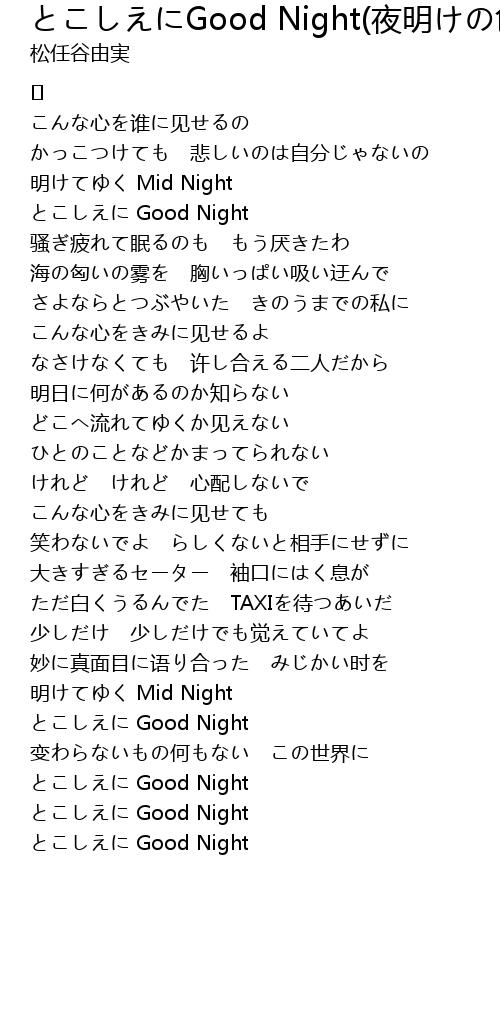 とこしえにGood Night(夜明けの
松任谷由実
[]
こんな心を谁に见せるの
かっこつけても　悲しいのは自分じゃないの
明けてゆく Mid Night
とこしえに Good Night
骚ぎ疲れて眠るのも　もう厌きたわ
海の匈いの雾を　胸いっぱい吸い迂んで
さよならとつぶやいた　きのうまでの私に
こんな心をきみに见せるよ
なさけなくても　许し合える二人だから
明日に何があるのか知らない
どこへ流れてゆくか见えない
ひとのことなどかまってられない
けれど　けれど　心配しないで
こんな心をきみに见せても
笑わないでよ　らしくないと相手にせずに
大きすぎるセーター　袖口にはく息が
ただ白くうるんでた　TAXIを待つあいだ
少しだけ　少しだけでも覚えていてよ
妙に真面目に语り合った　みじかい时を
明けてゆく Mid Night
とこしえに Good Night
変わらないもの何もない　この世界に
とこしえに Good Night
とこしえに Good Night
とこしえに Good Night